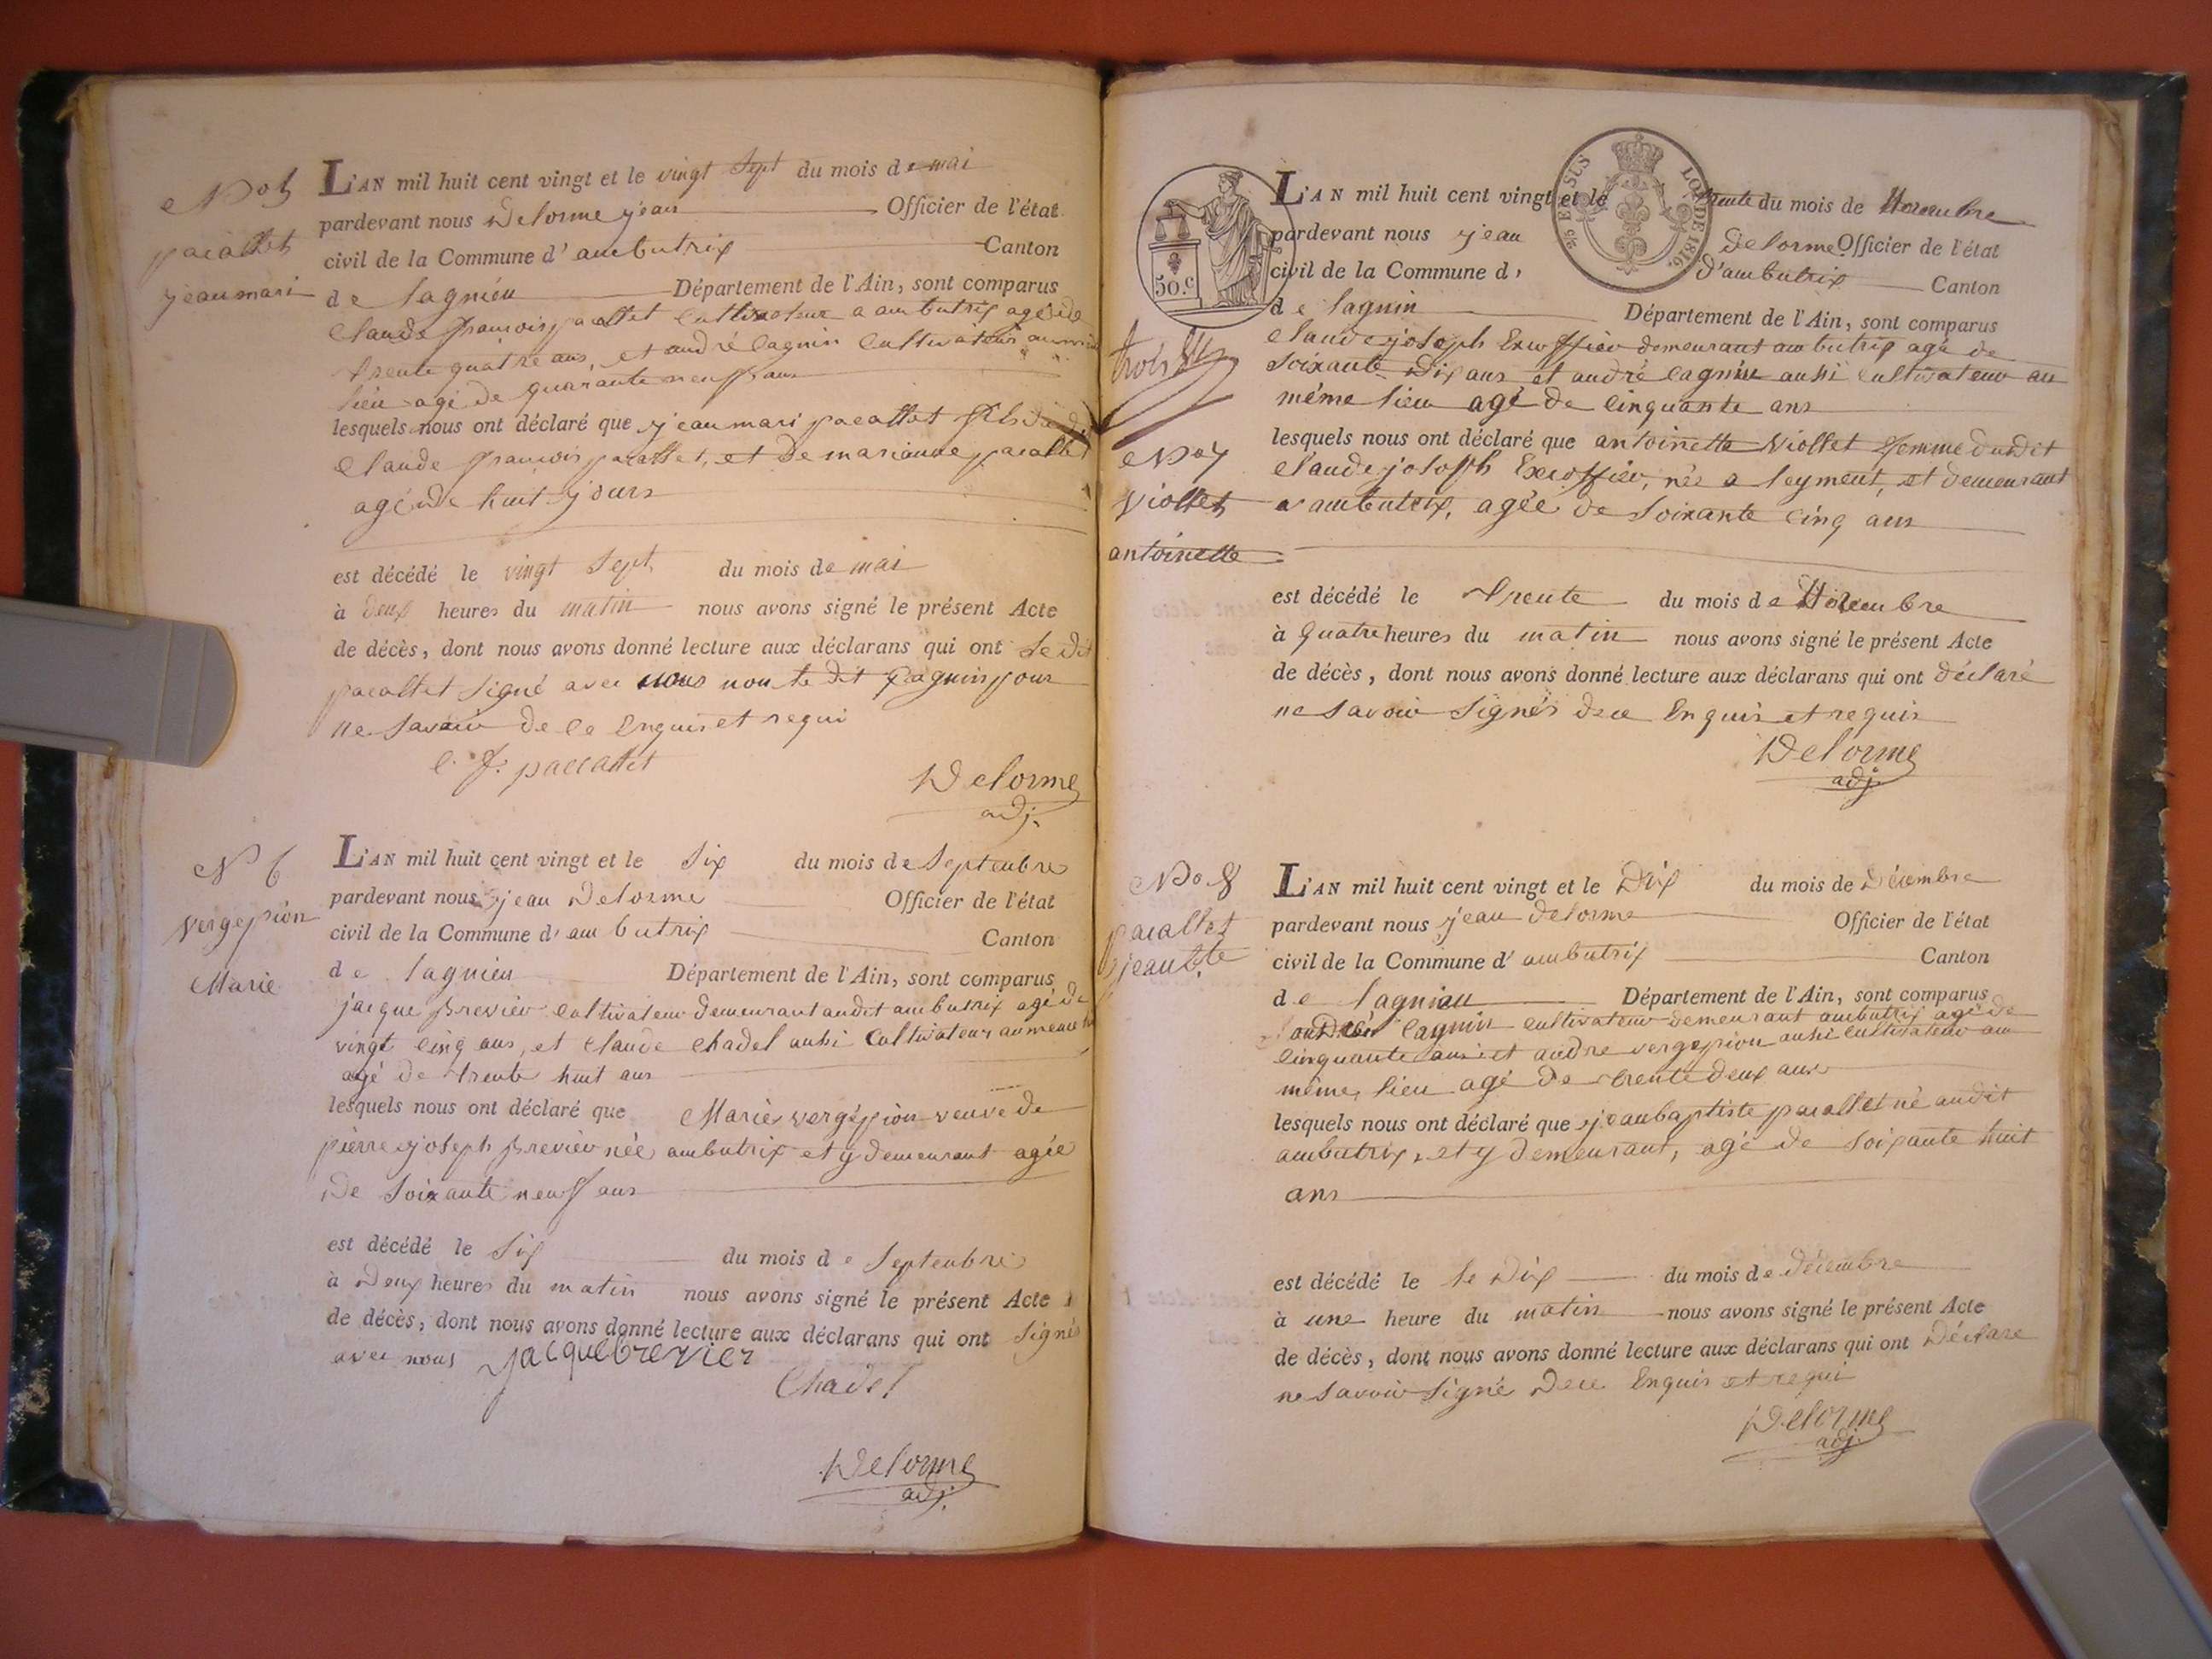 No 5
pacallet
jean mari
L'AN mil huit cent vingt et le vingt sept du mois de mai
pardevant nous Delorme jean Officier de l'état
civil de la Commune d'ambutrix Canton
de lagnieu Département de l'Ain, sont comparus
Claude françois pacallet cultivateur a ambutrix agé de
trente quatre ans, et andré Cagnin Cultivateur au
lieu agé de quarante neuf ans
lesquels nous ont déclaré que jean mari pacallet fils de
Claude françois pacallet, et de marianne pacallet
agé de huit jours
est décédé le vingt sept du mois de mai
à deux heures du matin nous avons signé le présent Acte
de décès, dont nous avons donné lecture aux déclarans qui ont le dit
pacallet signé avec nous non le dit Cagnin pour
ne savoir de ce Enquis et requi
C. f. pacallet
Delorme
adj.
N 6
vergepion
Marie
L'AN mil huit cent vingt et le six du mois de Septenbre
pardevant nous jean Delorme Officier de l'état
civil de la Commune d'ambutrix Canton
de lagnieu Département de l'Ain, sont comparus
jacque Brevier cultivateur demeurant audit ambutrix agé de
vingt cinq ans, et Claude Chadel aussi Cultivateur au meme
agé de trente huit ans
lesquels nous ont déclaré que Marie vergepion veuve de
pierre joseph Brevier née ambutrix et y demeurant agée
de soixante neuf ans
est décédé le six du mois de septenbre
à Deux heures du matin nous avons signé le présent Acte
de décès, dont nous avons donné lecture aux déclarans qui ont signés
avec nous jacque brevier
Chadel
Delorme
adj.
50.c
L'AN mil huit cent vingt et le trente du mois de Novenbre
pardevant nous jean delorme Officier de l'état
civil de la Commune d' d'ambutrix Canton
de lagnin Département de l'Ain, sont comparus
trois
No 7
Viollet
antoinette
Claude joseph Excoffier demeurant ambutrix agé de
soixante Dix ans et andré Cagnin aussi cultivateur au
même lieu agé de cinquante ans
lesquels nous ont déclaré que antoinette Viollet femme dudit
Claude joseph Excoffier, née a leyment, et demeurant
a ambutrix, agée de soixante cinq ans
est décédé le trente du mois de Novenbre
à quatre heures du matin nous avons signé le présent Acte
de décès, dont nous avons donné lecture aux déclarans qui ont déclaré
ne savoir signés dece Enquis et requis
Delorme
adj.
No 8
pacallet
jean Bte
L'AN mil huit cent vingt et le Dix du mois de Décembre
pardevant nous jean delorme Officier de l'état
civil de la Commune d'ambutrix Canton
de lagnieu Département de l'Ain, sont comparus
andré Cagnin cultivateur demeurant ambutrix agé de
cinquante ans et andre vergepion aussi cultivateur au
même lieu agé de trente deux ans
lesquels nous ont déclaré que jean baptiste pacallet né audit
ambutrix, et y demeurant, agé de soixante huit
ans
est décédé le le dix du mois de décembre
à une heure du matin nous avons signé le présent Acte
de décès, dont nous avons donné lecture aux déclarans qui ont Déclare
ne savoir signé Dece Enquis et requi
Delorme
adj.